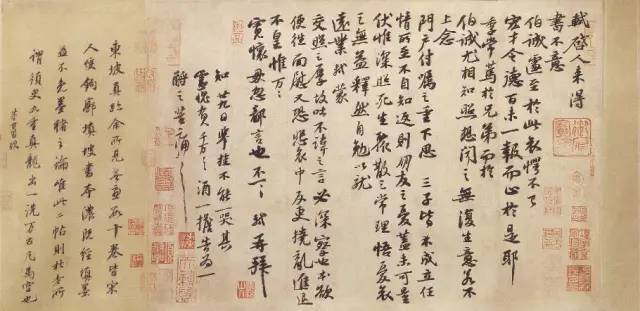 軾啓人來得
書不意
伯誠遽至於此哀愕不已
宏才令德百未一報而止於是耶
季常篤於兄弟而於
伯誠尤相知照想聞之無復生意若不
上念
門戶付囑之重下思三子皆不成立任
情所至不自知返則朋友之憂蓋未可量
伏惟深照死生聚散之常理悟憂哀
之無益釋然自勉以就
遠業軾蒙
交照之厚故吐不諱之言必深察也本欲
便往面慰又恐悲哀中反更撓亂進退
不皇惟萬萬
寬懷毋忽鄙言也不一一軾再拜
知廿九日舉掛不能一哭其
靈愧負千萬千萬酒一擔告為一
酹之苦痛苦痛
東坡真跡余所見無慮十卷皆宋
人雙鉤廓填坡書本濃既經填墨
益不免墨豬之論唯此二帖則杜老所
謂須臾九重真龍出一洗萬古凡馬空也
董其昌題